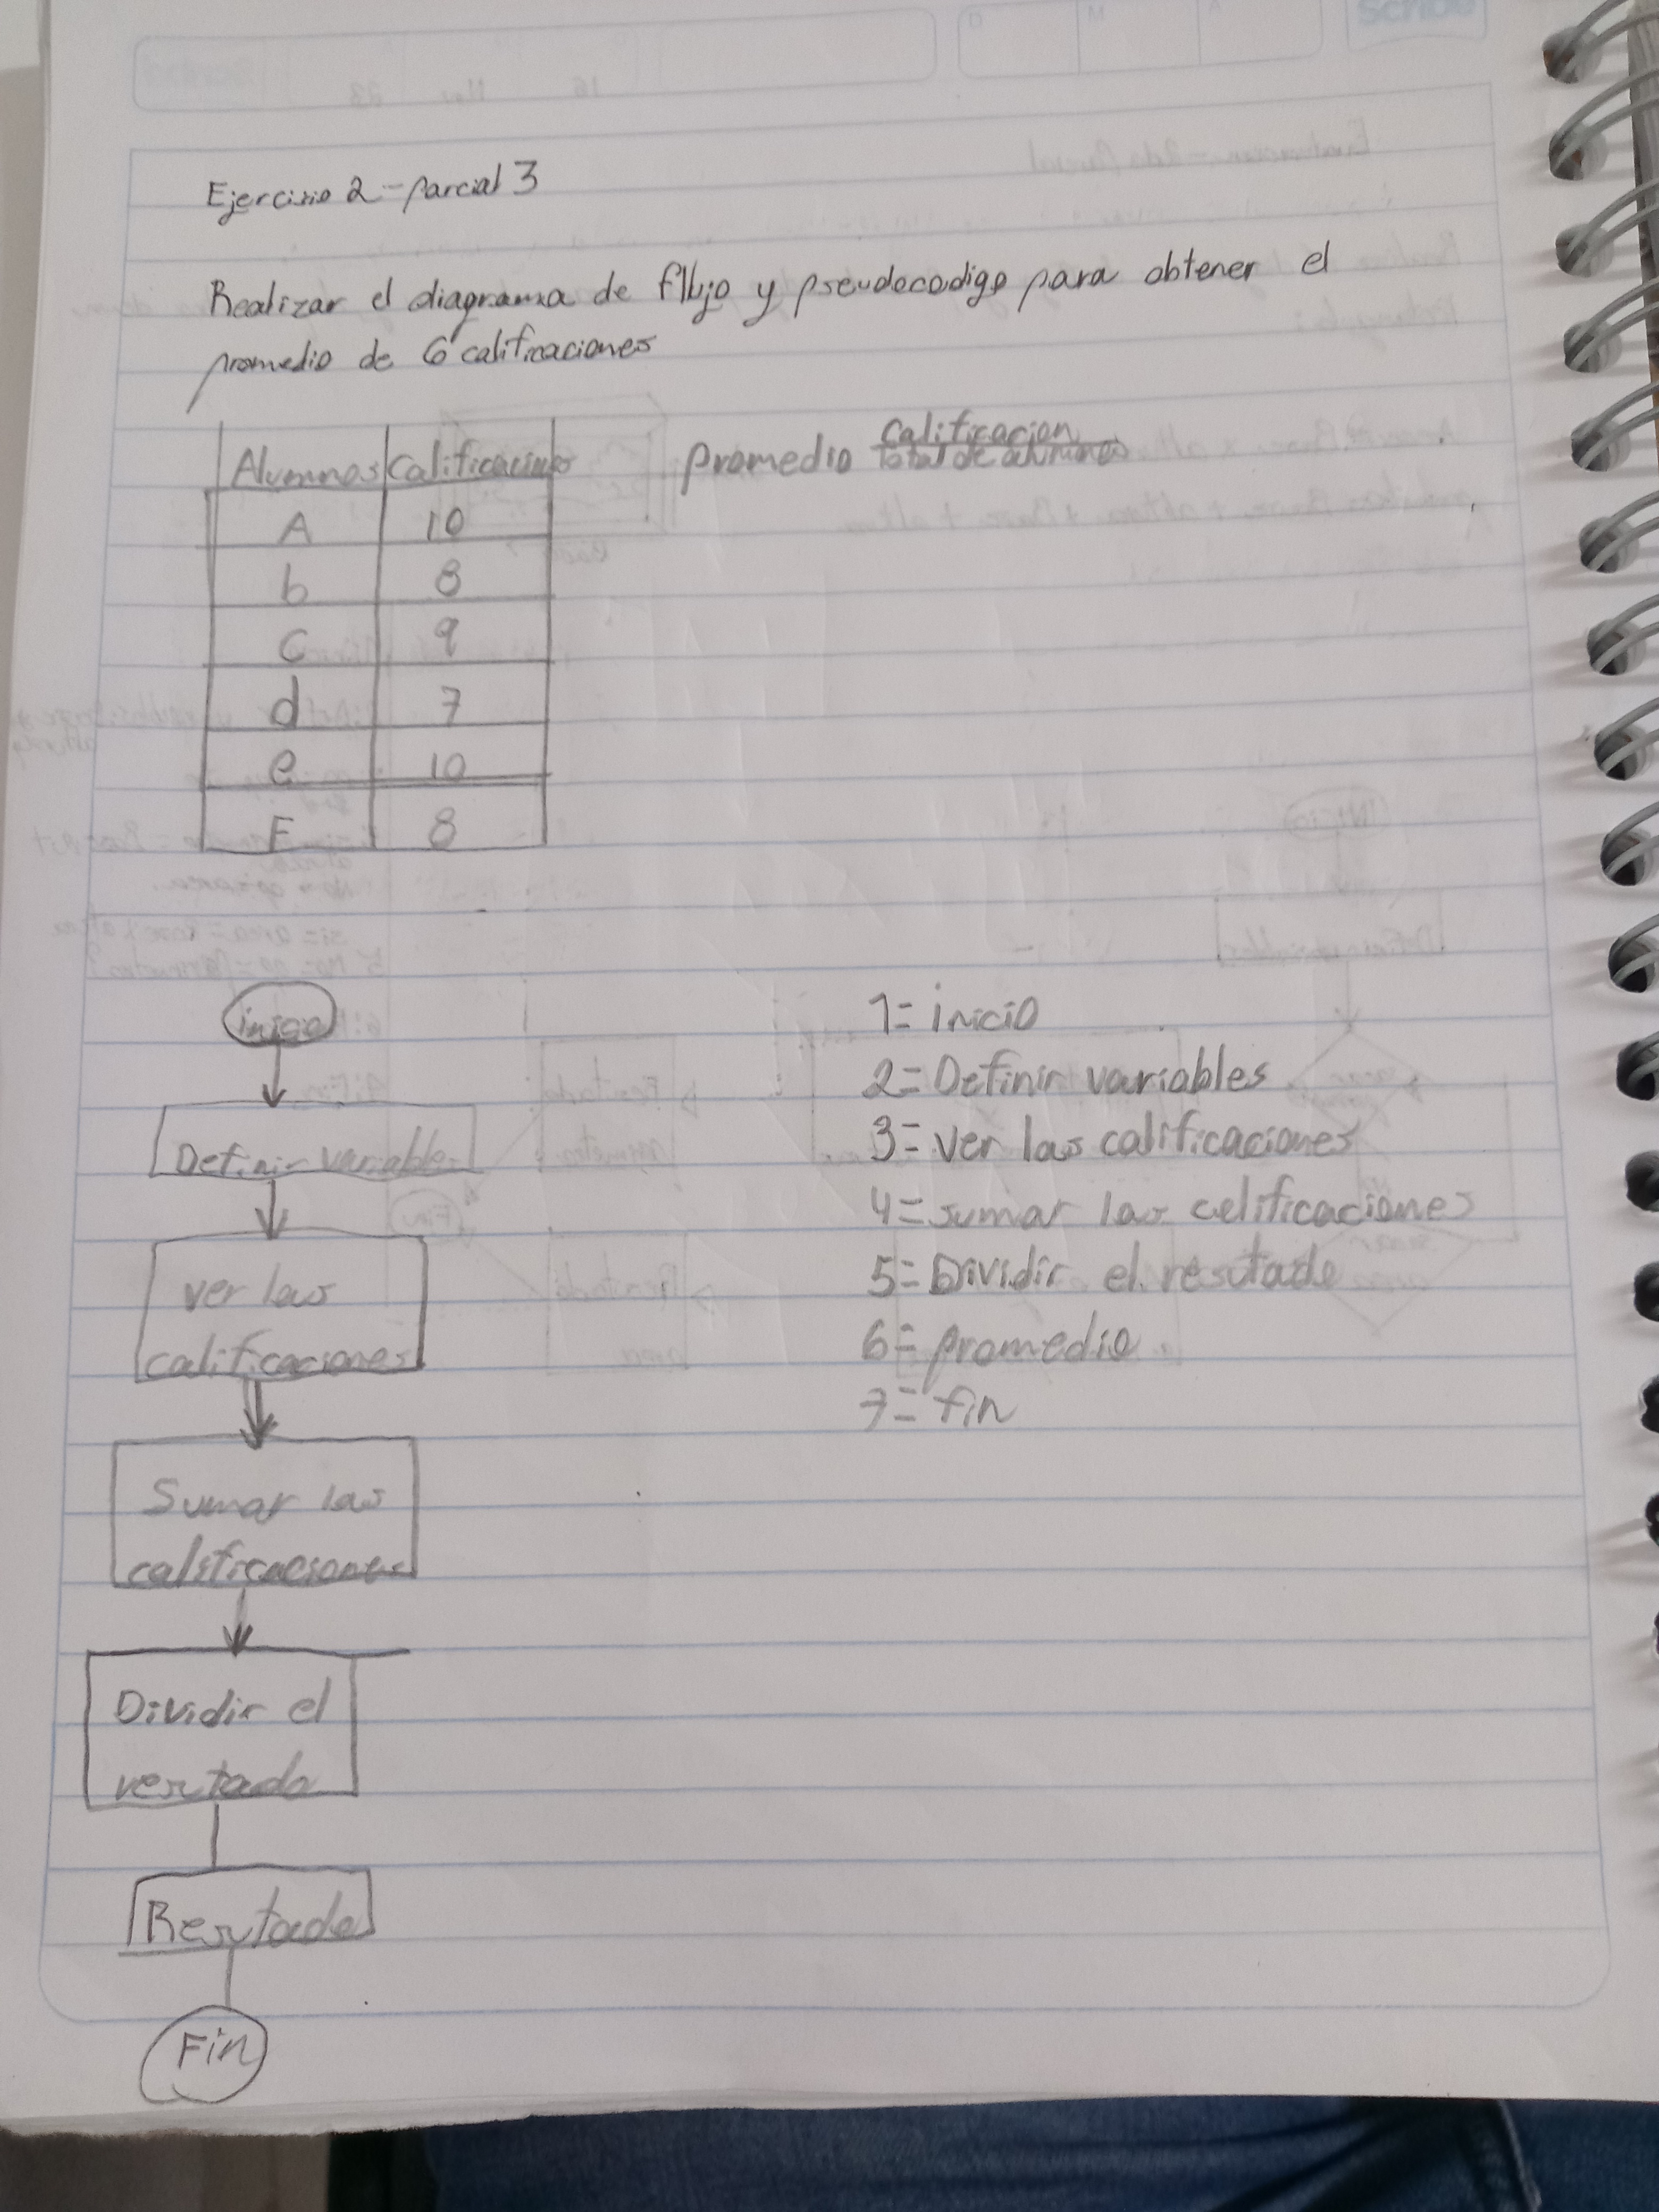 Scribe
D M A
Ejercisio 2 - parcial 3
Realizar el diagrama de flujo y pseudocodigo para obtener el
promedio de 6 calificaciones
Alumnos Calificacion
promedio Calificacion
Total de alumnos
A 10
b 8
C 9
d 7
e 10
F 8
inicio
Definir variables
ver las
calificaciones
Sumar las
calificaciones
Dividir el
resutado
Resutado
Fin
1= inicio
2= Definir variables
3= ver las calificaciones
4= sumar las celificaciones
5= Dividir el resutado
6= promedio
7= fin